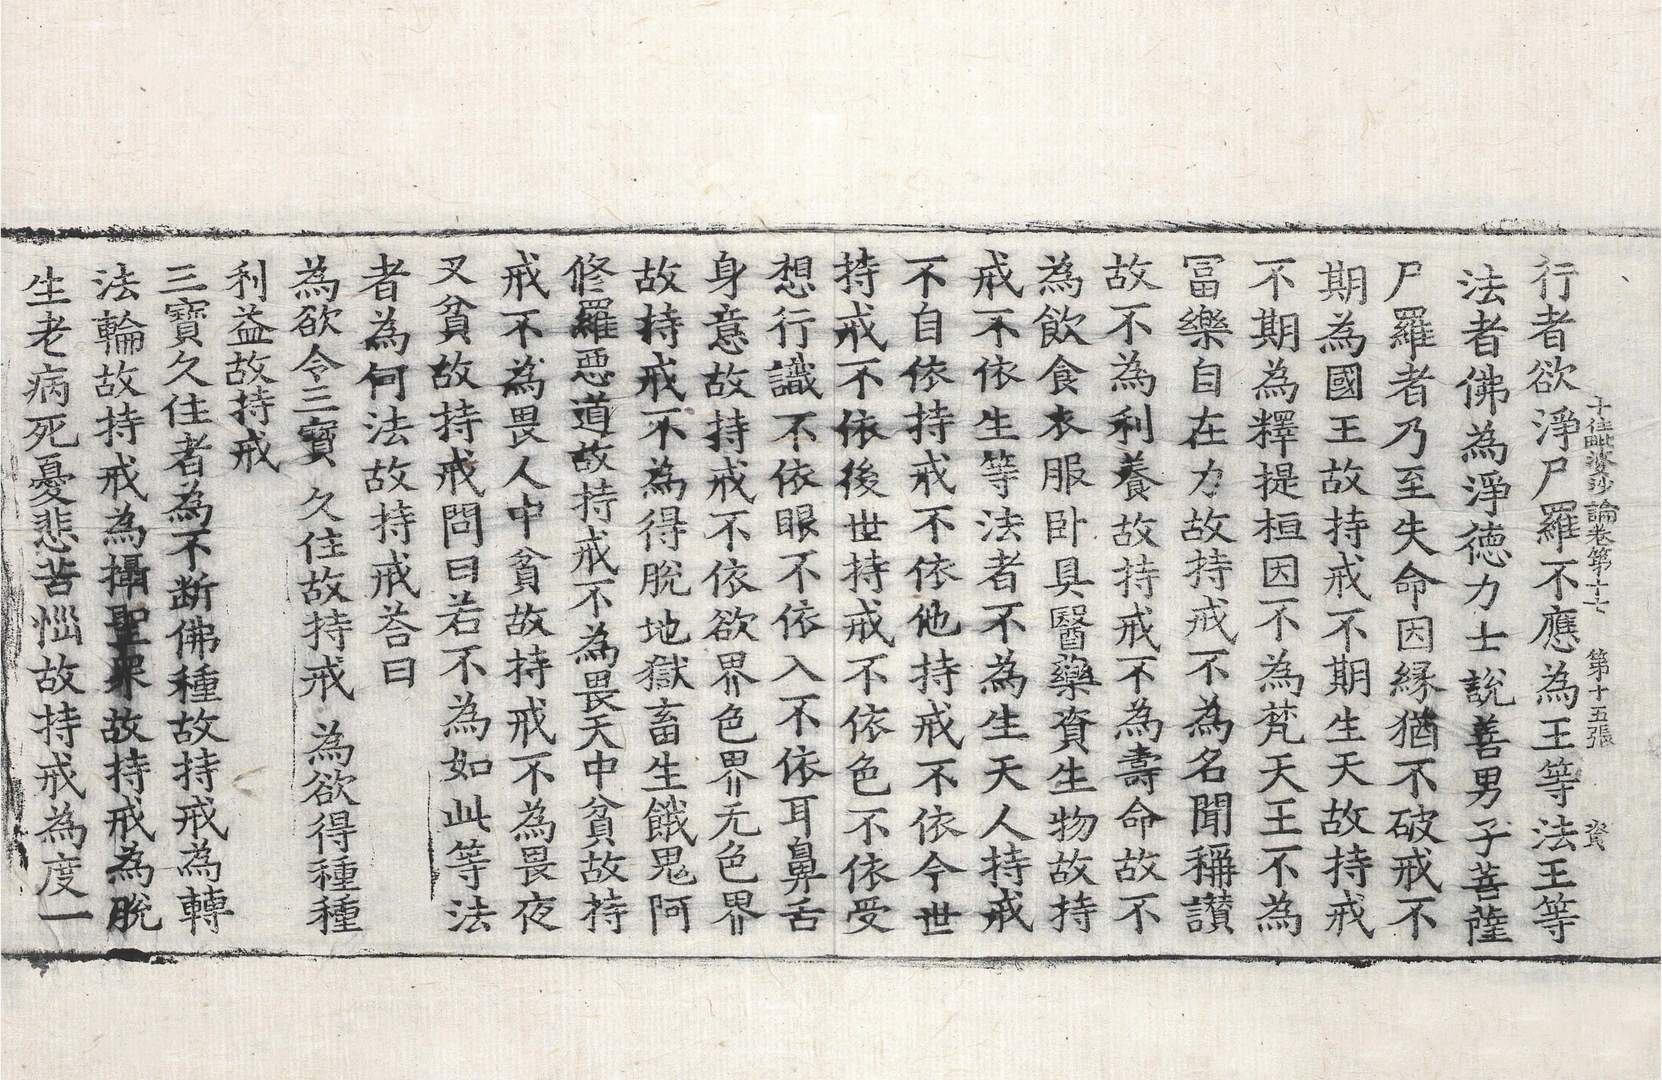 十住毗婆沙論卷第十七 第十五張 資
行者欲淨尸羅不應為王等法王等
法者佛為淨德力士說善男子菩薩
尸羅者乃至失命因緣猶不破戒不
期為國王故持戒不期生天故持戒
不期為釋提桓因不為梵天王不為
冨樂自在力故持戒不為名聞稱讃
故不為利養故持戒不為壽命故不
為飲食衣服卧具醫藥資生物故持
戒不依生等法者不為生天人持戒
不自依持戒不依他持戒不依今世
持戒不依後世持戒不依色不依受
想行識不依眼不依入不依耳鼻舌
身意故持戒不依欲界色界无色界
故持戒不為得脫地獄畜生餓鬼阿
修羅惡道故持戒不為畏天中貧故持
戒不為畏人中貧故持戒不為畏夜
叉貧故持戒問曰若不為如此等法
者為何法故持戒荅曰
為欲令三寶 久住故持戒 為欲得種種
利益故持戒
三寶久住者為不断佛種故持戒為轉
法輪故持戒為攝聖眾故持戒為脫
生老病死憂悲苦惱故持戒為度一